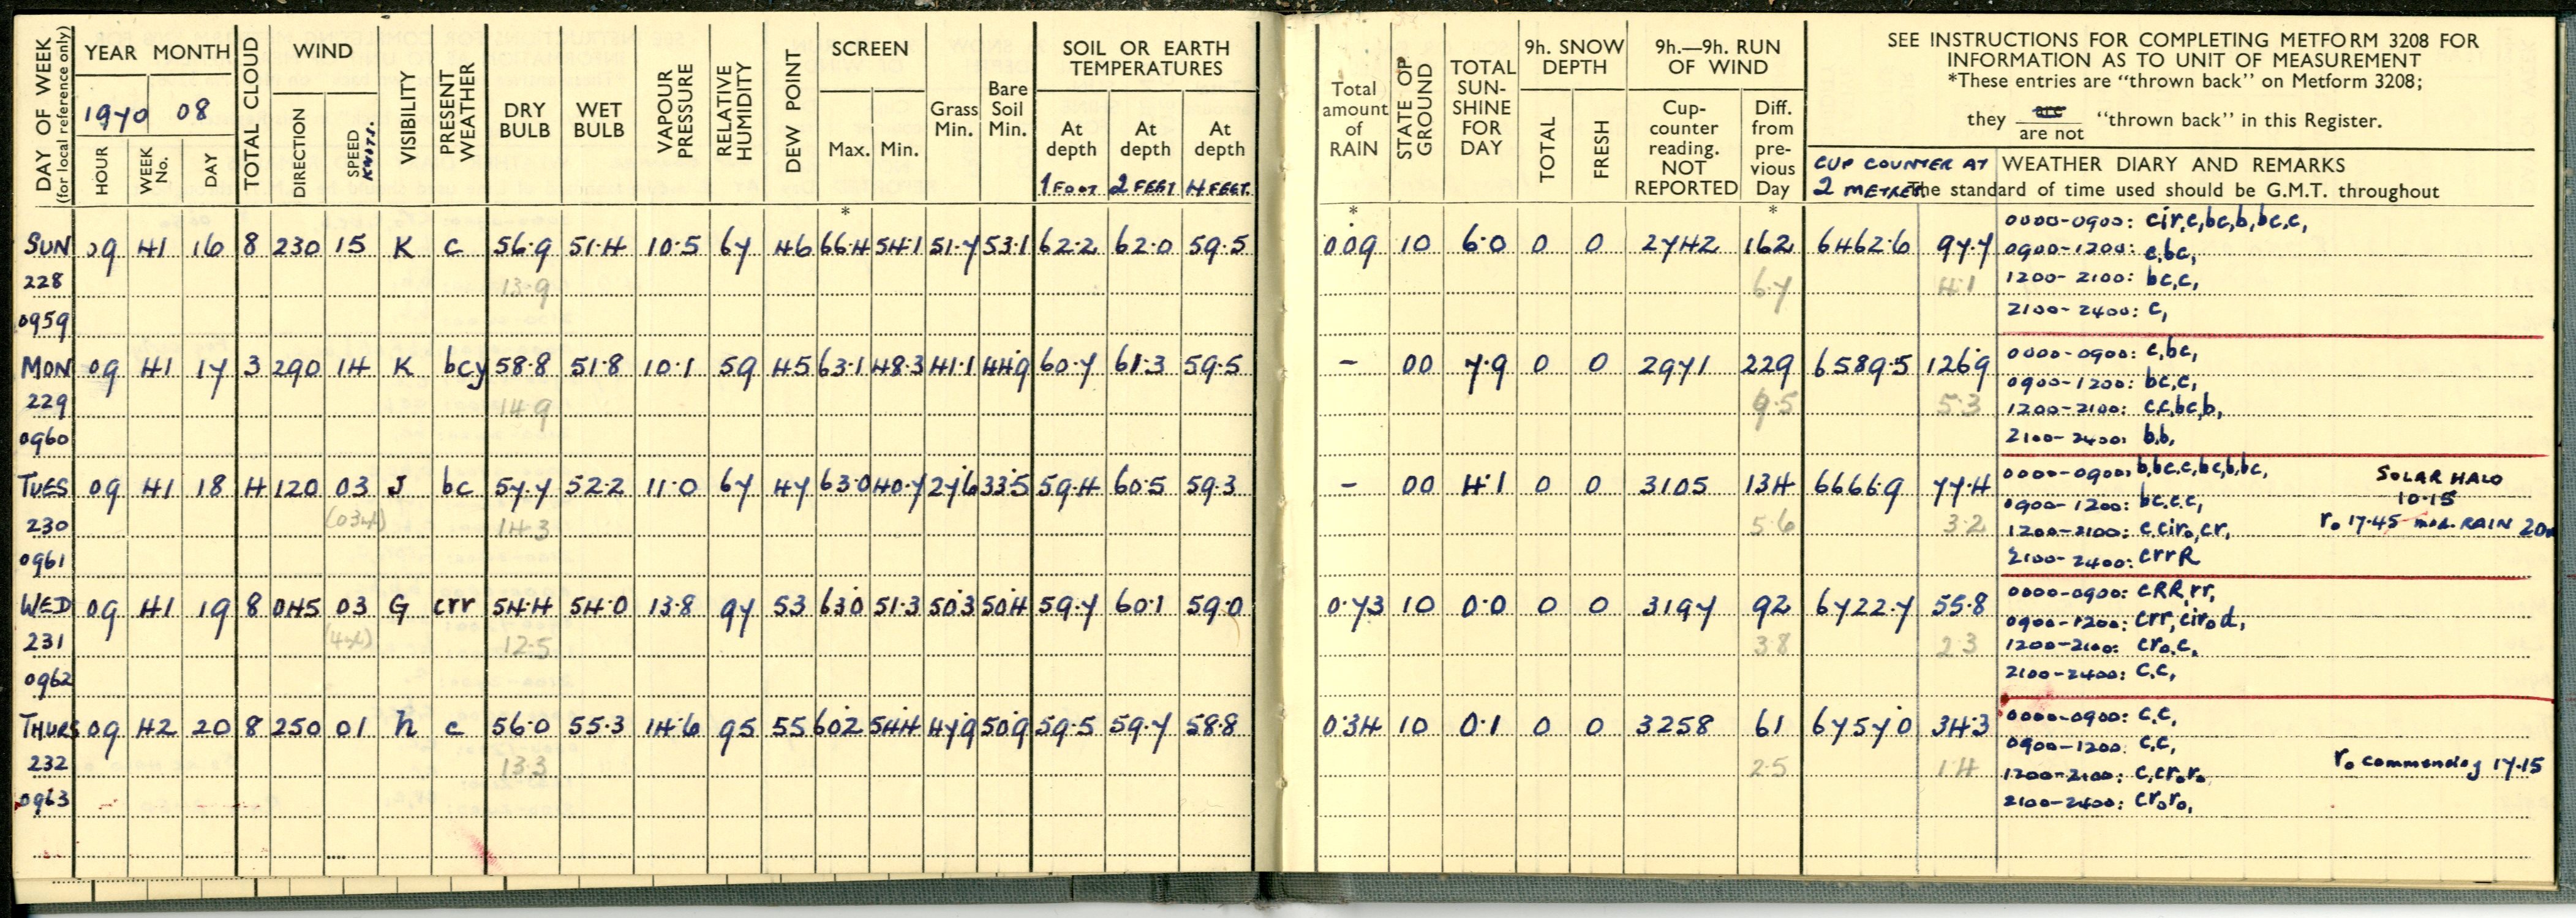 DAY OF WEEK
(for local reference only)
YEAR MONTH
1970 08
HOUR
WEEK No.
DAY
TOTAL CLOUD
WIND
DIRECTION
SPEED KNOTS.
VISIBILITY
PRESENT WEATHER
DRY BULB
WET BULB
VAPOUR PRESSURE
RELATIVE HUMIDITY
DEW POINT
SCREEN
Max. Min.
Grass Min.
Bare Soil Min.
SOIL OR EARTH TEMPERATURES
At depth 1 FOOT
At depth 2 FEET
At depth 4 FEET.
Total amount of RAIN
STATE OF GROUND
TOTAL SUN-SHINE FOR DAY
9h. SNOW DEPTH
TOTAL
FRESH
9h.—9h. RUN OF WIND
Cup-counter reading. NOT REPORTED
Diff. from pre-vious Day
SEE INSTRUCTIONS FOR COMPLETING METFORM 3208 FOR
INFORMATION AS TO UNIT OF MEASUREMENT
*These entries are “thrown back” on Metform 3208;
they are / are not “thrown back” in this Register.
CUP COUNTER AT 2 METRES
WEATHER DIARY AND REMARKS
The standard of time used should be G.M.T. throughout
* * *
SUN 09 41 16 8 230 15 K c 56.9 51.4 10.5 67 46 66.4 54.1 51.7 53.1 62.2 62.0 59.5 0.09 10 6.0 0 0 2742 162 6462.6 97.7
0000-0900: cir,c,bc,b,bc,c,
0900-1200: c,bc,
228 13.9 6.7 4.1
1200-2100: bc,c,
0959
2100-2400: c,
MON 09 41 17 3 290 14 K bcy 58.8 51.8 10.1 59 45 63.1 48.3 41.1 44.9 60.7 61.3 59.5 - 00 7.9 0 0 2971 229 6589.5 126.9
0000-0900: c,bc,
0900-1200: bc,c,
229 14.9 9.5 5.3
1200-2100: c,c,bc,b,
0960
2100-2400: b,b,
TUES 09 41 18 4 120 03 J bc 57.7 52.2 11.0 67 47 63.0 40.7 27.6 33.5 59.4 60.5 59.3 - 00 4.1 0 0 3105 134 6666.9 77.4
0000-0900: b,bc,c,bc,b,bc,
SOLAR HALO 10.15
0900-1200: bc,c,c,
230 14.3 5.6 3.2
1200-2100: c,ciro,cr,
ro 17.45 mod. RAIN
0961
2100-2400: crrR
WED 09 41 19 8 045 03 G crr 54.4 54.0 13.8 97 53 63.0 51.3 50.3 50.4 59.7 60.1 59.0 0.73 10 0.0 0 0 3197 92 6722.7 55.8
0000-0900: cRR,rr,
0900-1200: crr,cirod,
231 12.5 3.8 2.3
1200-2100: cro,c,
0962
2100-2400: c,c,
THURS 09 42 20 8 250 01 h c 56.0 55.3 14.6 95 55 60.2 54.4 47.9 50.9 59.5 59.7 58.8 0.34 10 0.1 0 0 3258 61 6757.0 34.3
0000-0900: c,c,
0900-1200: c,c,
232 13.3 2.5 1.4
1200-2100: c,cro,ro,
ro commencing 17.15
0963
2100-2400: croro,